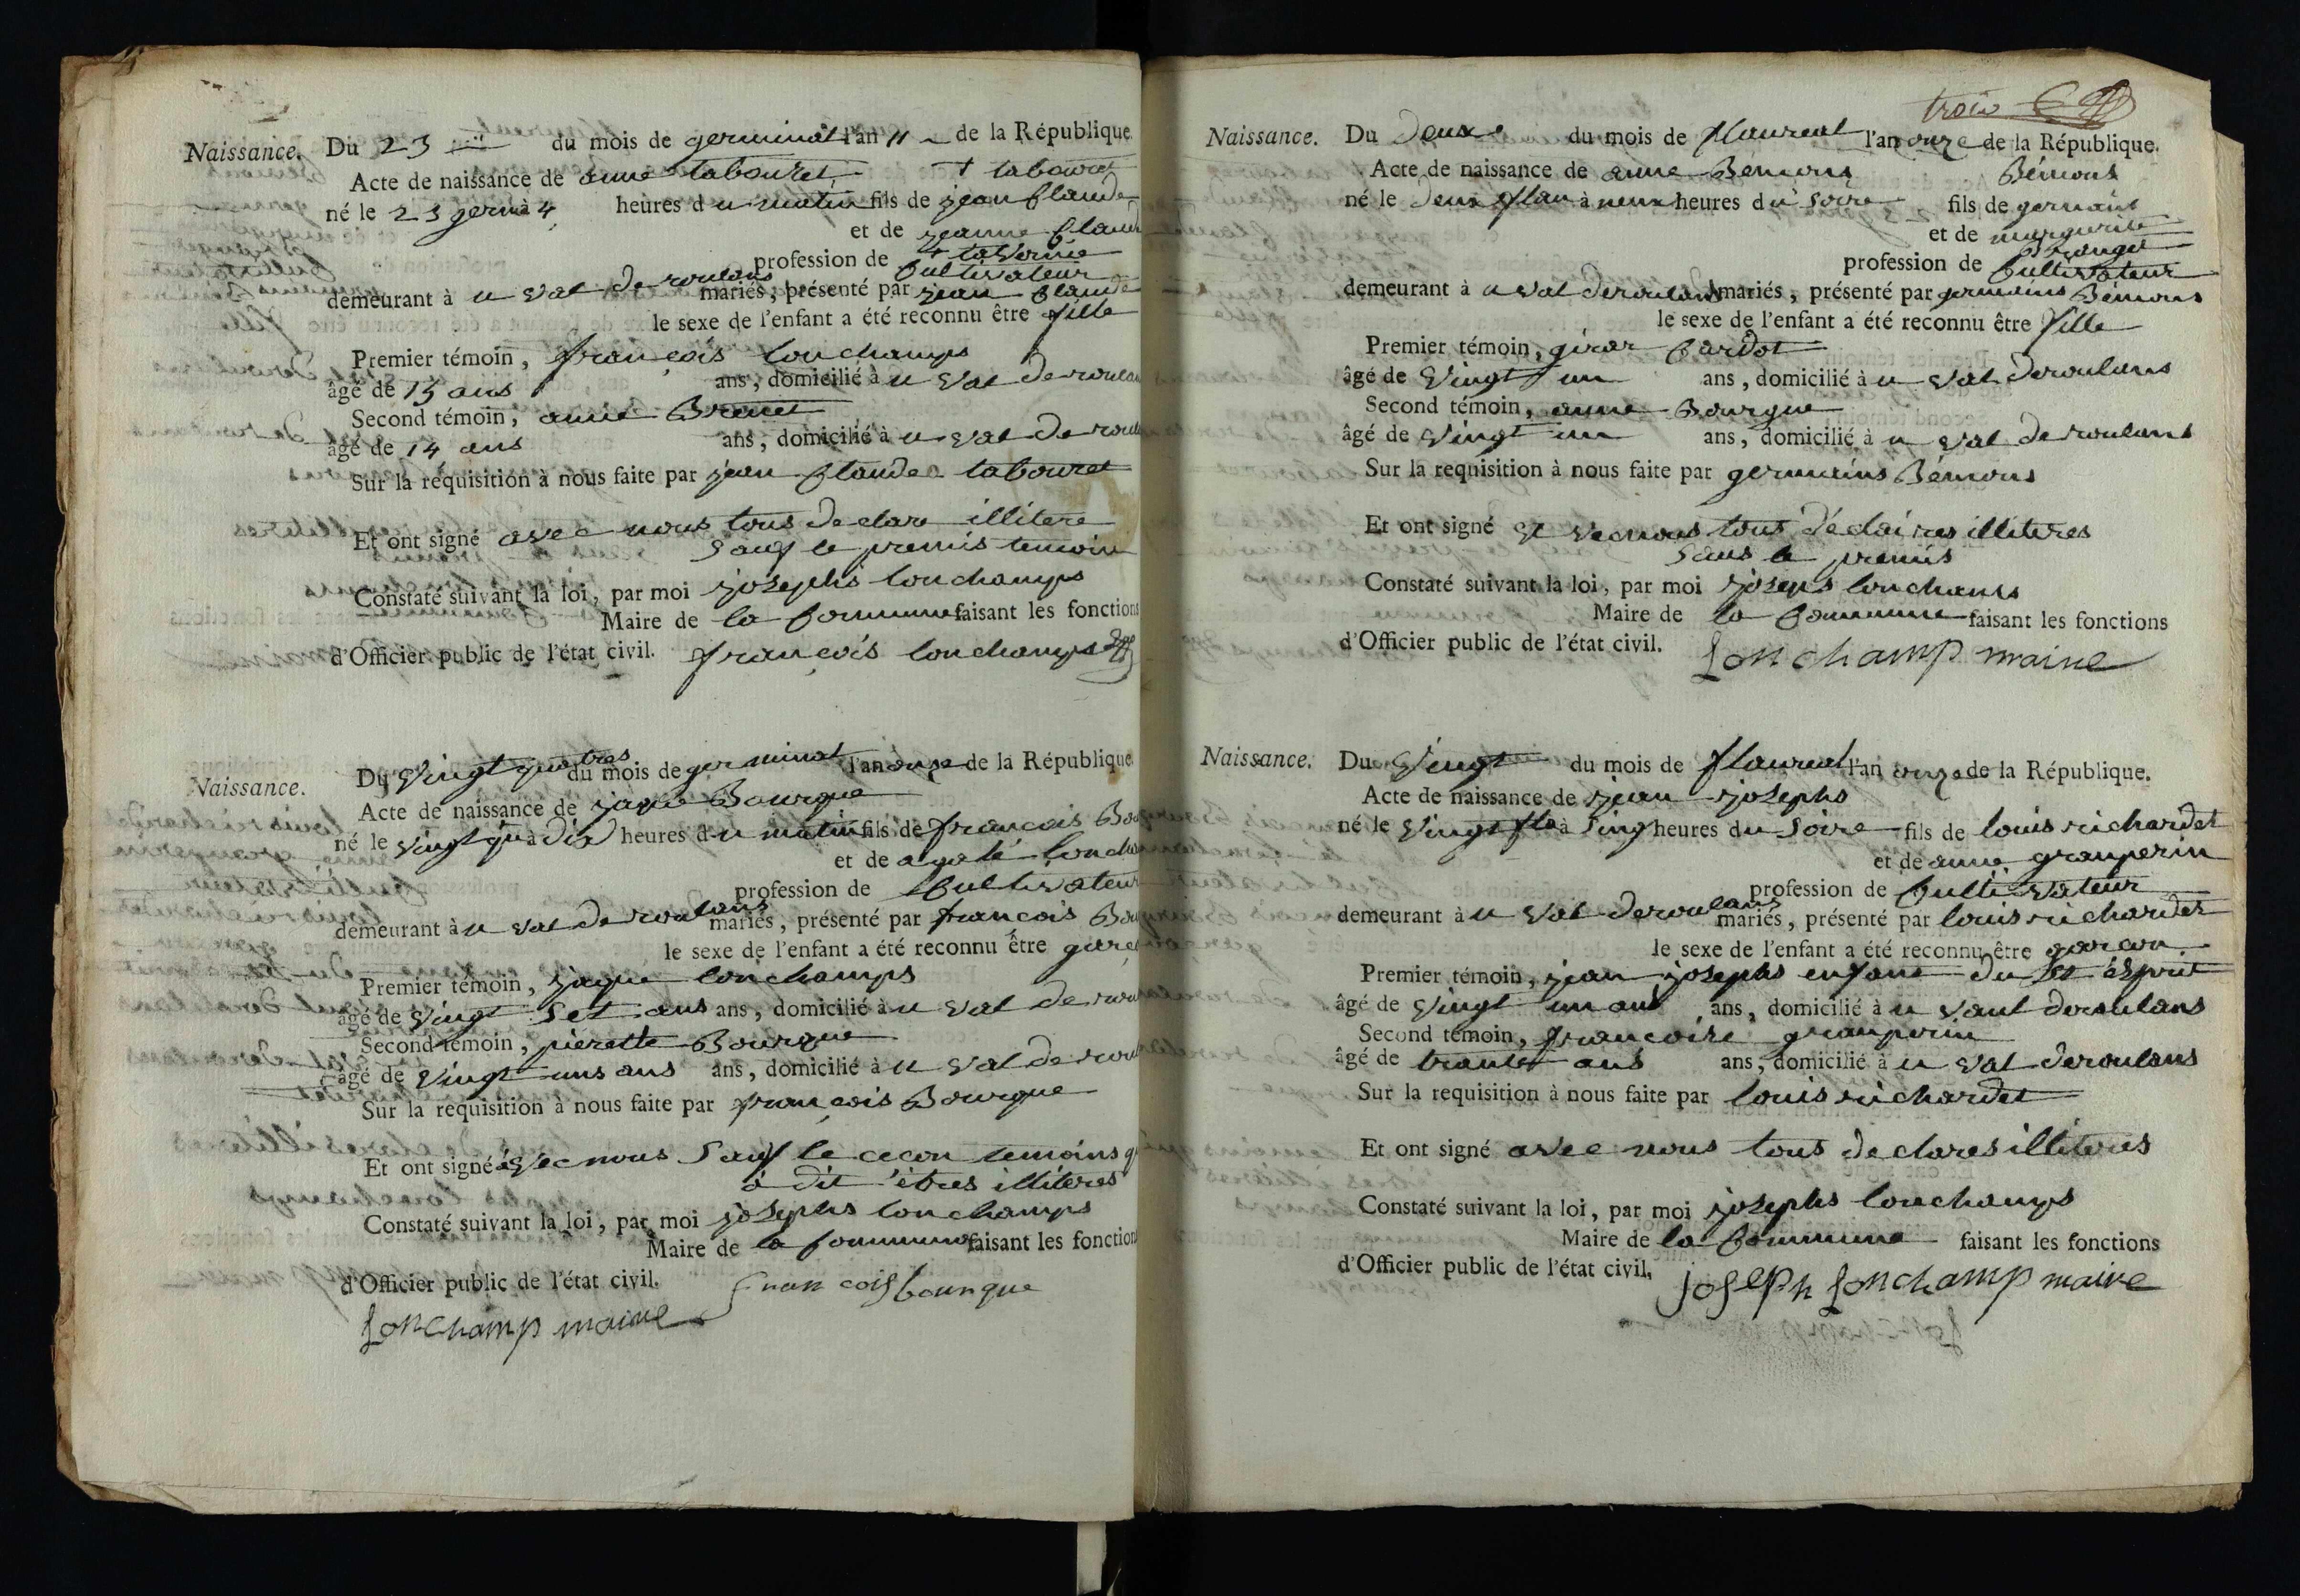 Naissance. Du 23 du mois de germinal l'an 11 de la République
Acte de naissance de anne tabouret + tabouret
né le 23 germ à 4 heures du matin fils de jean Claude
et de jeanne Claude
+ taverne
profession de Cultivateur
demeurant à u val de roulans mariés, présenté par jean Claude
le sexe de l'enfant a été reconnu être fille
Premier témoin, françois lonchamps
âgé de 15 ans ans, domicilié à u val de roulan
Second témoin, anne Brenet
âgé de 14 ans ans, domicilié à u val de roul
Sur la requisition à nous faite par jean Claude tabouret
Et ont signé avec nous tous declare illitere
Sauf le premis temoin
Constaté suivant la loi, par moi josephs lonchamps
Maire de la Commune faisant les fonctions
d'Officier public de l'état civil. françois lonchamps
Naissance. Du Vingt quatres du mois de germinal l'an onze de la République
Acte de naissance de jaque Bourque
né le vingt qu à dix heures du matin fils de francois Bou
et de agate Loncha
profession de Cultivateur
demeurant à u val de roulans mariés, présenté par francois Bou
le sexe de l'enfant a été reconnu être garç
Premier témoin, jaque lonchamps
âgé de vingt set ans ans, domicilié à u val de roul
Second témoin, pierette Bourque
âgé de vingt uns ans ans, domicilié à u val de roul
Sur la requisition à nous faite par françois Bourque
Et ont signé avec nous Sauf le cecon temoins q
a dit êtres illiteres
Constaté suivant la loi, par moi josephs lonchamps
Maire de la Commune faisant les fonction
d'Officier public de l'état civil. francois bourque
Lonchamp maire
trois
Naissance. Du Deux du mois de flaureal l'an onze de la République.
Acte de naissance de anne Bémons Bémons
né le Deux flau à neux heures du Soire fils de germains
et de marguerite
profession de Cultivateur
demeurant à u val deroulans mariés, présenté par germains Bémons
le sexe de l'enfant a été reconnu être fille
Premier témoin, girar Cardot
âgé de Vingt un ans, domicilié à u val deroulans
Second témoin, anne Bourgue
âgé de Vingt un ans, domicilié à u val de roulans
Sur la requisition à nous faite par germains Bémons
Et ont signé et vecnous tous déclaires illiteres
Saus le premis
Constaté suivant la loi, par moi joseps lonchams
Maire de la Commune faisant les fonctions
d'Officier public de l'état civil. Lonchamp maire
Naissance. Du Vingt du mois de flaureal l'an onze de la République.
Acte de naissance de jean josephs
né le Vingt flo à Sinq heures du Soire fils de louis richardet
et de anne granperin
profession de Cultivateur
demeurant à u val deroulans mariés, présenté par louis richardet
le sexe de l'enfant a été reconnu être garcon
Premier témoin, jean josephs enfant du St ésprit
âgé de vingt un ans ans, domicilié à u vaul deroulans
Second témoin, françoise granperin
âgé de trante ans ans, domicilié à u val deroulans
Sur la requisition à nous faite par louis richardet
Et ont signé avec nous tous declares illiteres
Constaté suivant la loi, par moi josephs lonchamps
Maire de la Commune faisant les fonctions
d'Officier public de l'état civil, joseph Lonchamp maire